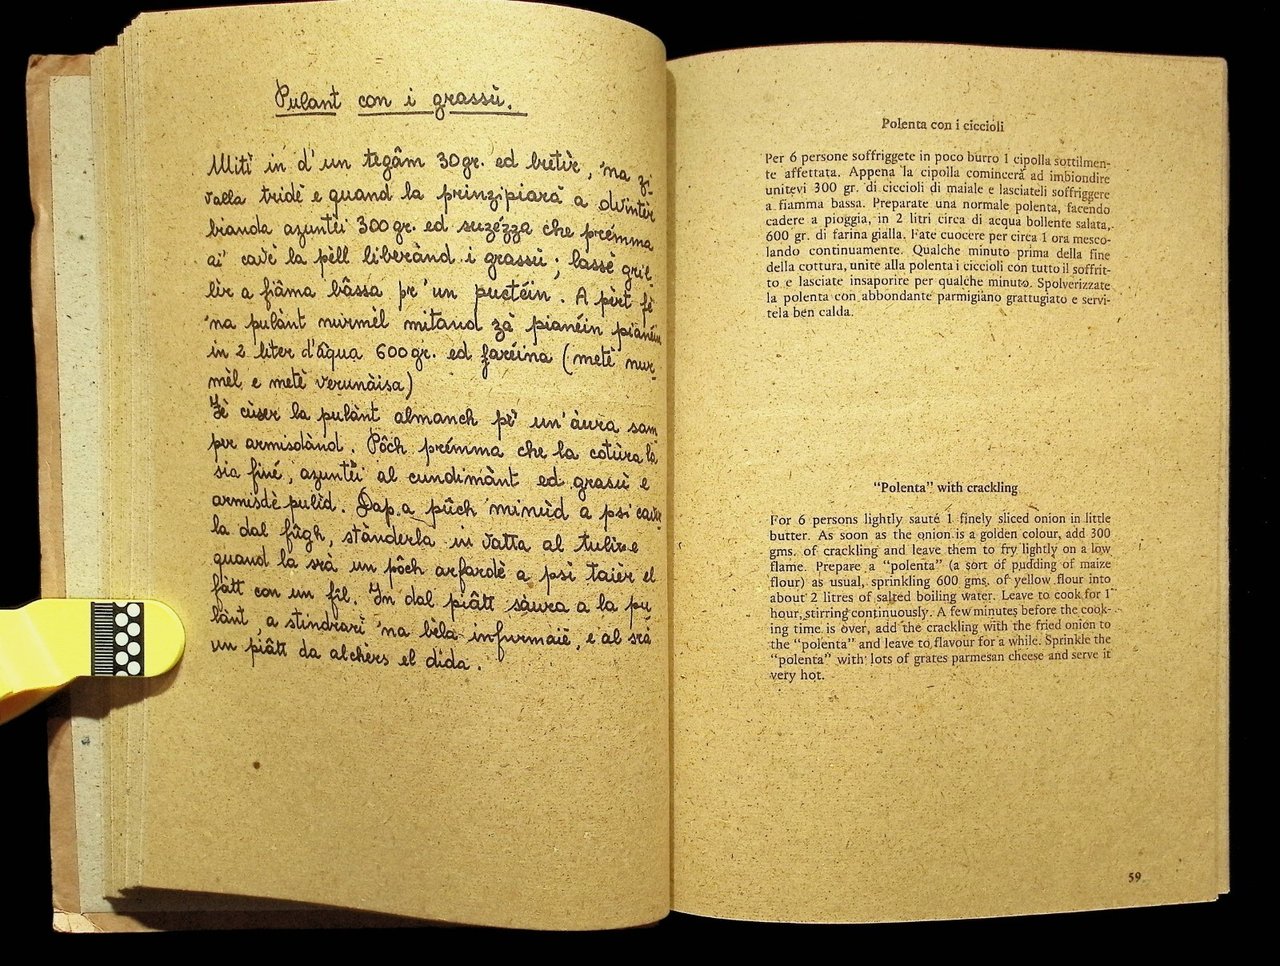 Pulant con i grassù.
Mitì in d'un tegâm 30gr. ed butìr, 'na zi-
valla tridè e quand la prinzipiarà a dvintèr
bianda azuntèi 300gr. ed suzézza che prémma
ai' cavè la pèll liberànd i grassù; lassè gril-
lìr a fiâma bâssa pr'un puctéin. A pèrt fè
'na pulànt nurmèl mitand zà pianéin pianéin
in 2 liter d'âqua 600gr. ed faréina (metè nur-
mèl e metè verunàisa)
Fè cùser la pulànt almanch pr' un'àura sam
per armisdànd. Pôch prémma che la cotùra la
sia finé, azuntèi al cundimànt ed grasù e
armisdè pulid. Dap a pûch minùd a psì cavèr
la dal fûgh, stànderla in vatta al tulìr e
quand la srà un pôch arfardè a psì taièr el
fàtt con un fil. In dal piâtt sàura a la pu
lànt, a stindrarì 'na bèla infurmaiè, e al srà
un piâtt da alchèrs el dida.
Polenta con i ciccioli
Per 6 persone soffriggete in poco burro 1 cipolla sottilmen-
te affettata. Appena la cipolla comincerà ad imbiondire
unitevi 300 gr. di ciccioli di maiale e lasciateli soffriggere
a fiamma bassa. Preparate una normale polenta, facendo
cadere a pioggia, in 2 litri circa di acqua bollente salata,
600 gr. di farina gialla. Fate cuocere per circa 1 ora mesco-
lando continuamente. Qualche minuto prima della fine
della cottura, unite alla polenta i ciccioli con tutto il soffrit-
to e lasciate insaporire per qualche minuto. Spolverizzate
la polenta con abbondante parmigiano grattugiato e servi-
tela ben calda.
"Polenta" with crackling
For 6 persons lightly sauté 1 finely sliced onion in little
butter. As soon as the onion is a golden colour, add 300
gms. of crackling and leave them to fry lightly on a low
flame. Prepare a "polenta" (a sort of pudding of maize
flour) as usual, sprinkling 600 gms. of yellow flour into
about 2 litres of salted boiling water. Leave to cook for 1
hour, stirring continuously. A few minutes before the cook-
ing time is over, add the crackling with the fried onion to
the "polenta" and leave to flavour for a while. Sprinkle the
"polenta" with lots of grates parmesan cheese and serve it
very hot.
59